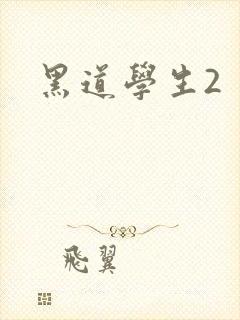 黑道學生2
飛翼